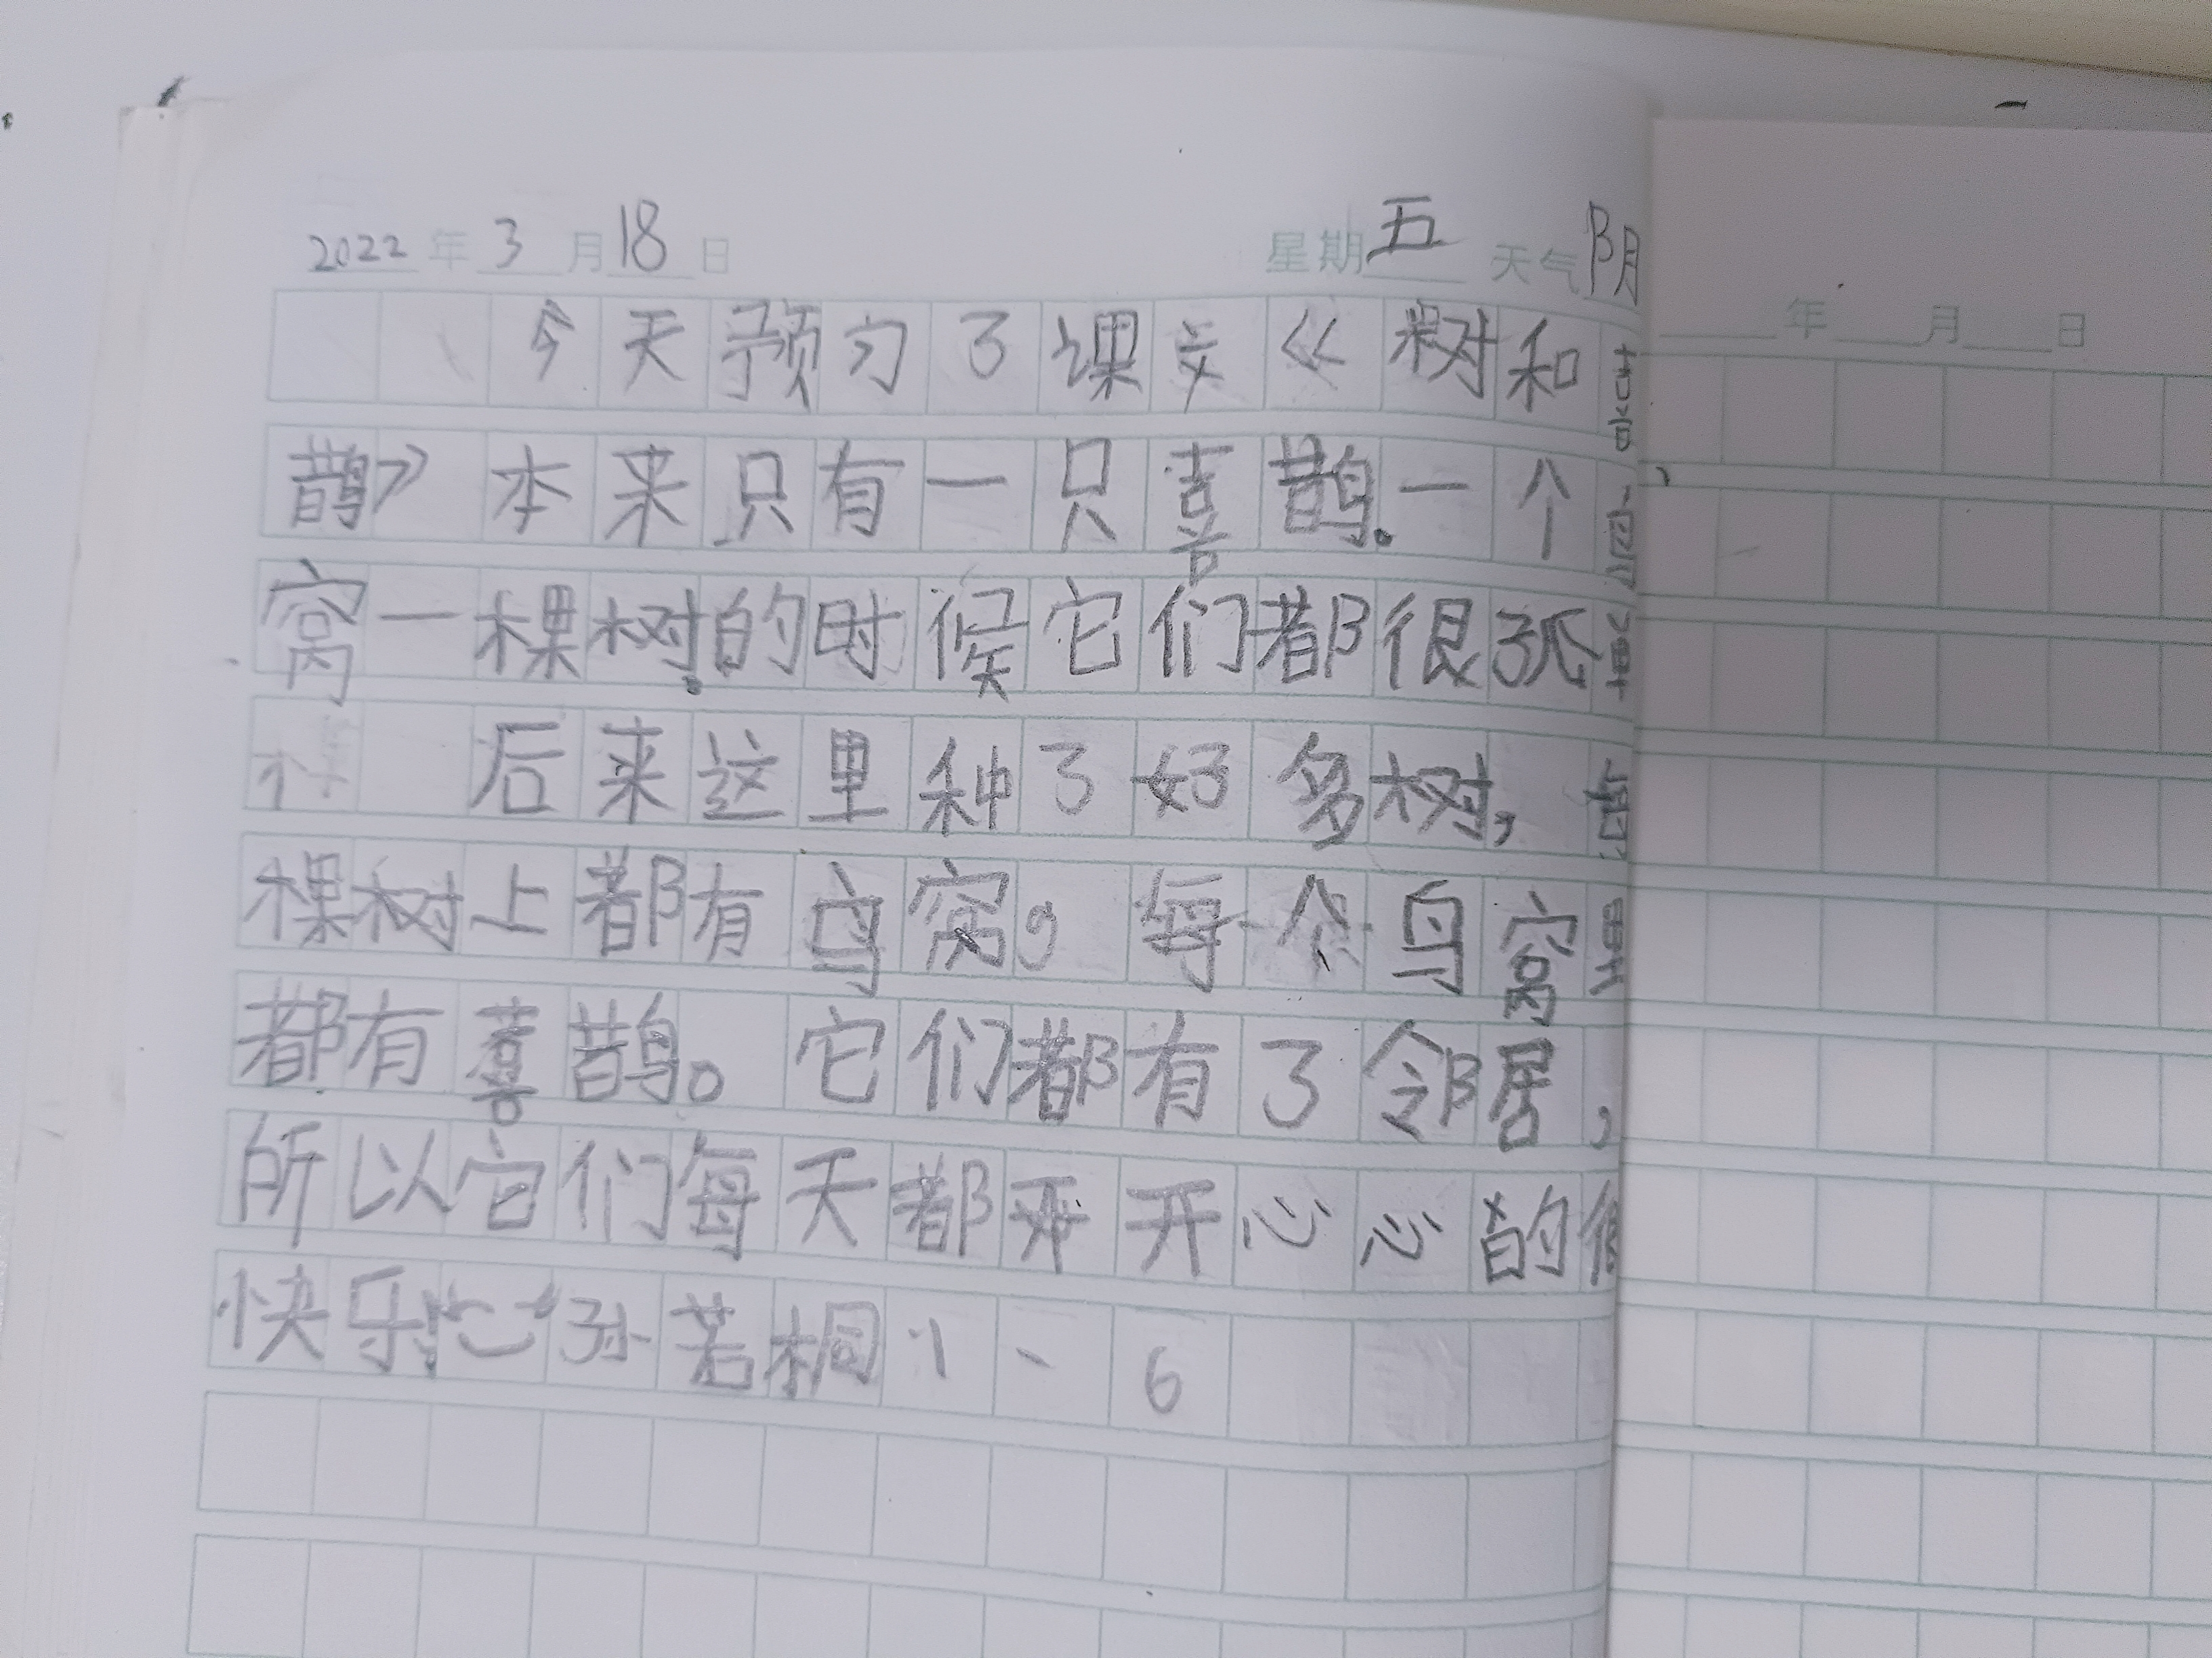 2022年3月18日 星期五 天气阴
今天预习了课文《树和喜
鹊》本来只有一只喜鹊。一个鸟
窝一棵树。的时候它们都很孤单
后来这里种了好多树,每
棵树上都有鸟窝,每个鸟窝里
都有喜鹊。它们都有了邻居,
所以它们每天都开开心心的很
快乐!孙若桐1、6
年 月 日